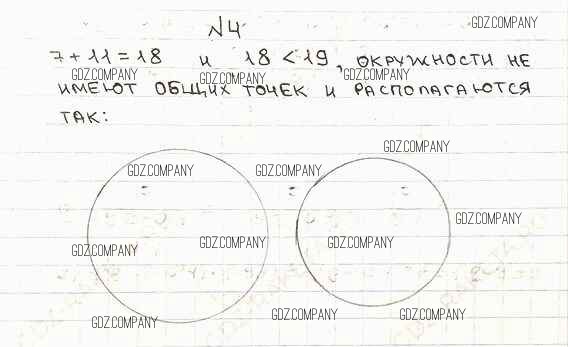 №4
GDZ.COMPANY
7 + 11 = 18 и 18 < 19, ОКРУЖНОСТИ НЕ
GDZ.COMPANY GDZ.COMPANY GDZ.COMPANY
ИМЕЮТ ОБЩИХ ТОЧЕК И РАСПОЛАГАЮТСЯ
ТАК:
GDZ.COMPANY
GDZ.COMPANY GDZ.COMPANY
GDZ.COMPANY
GDZ.COMPANY GDZ.COMPANY GDZ.COMPANY
GDZ.COMPANY GDZ.COMPANY GDZ.COMPANY